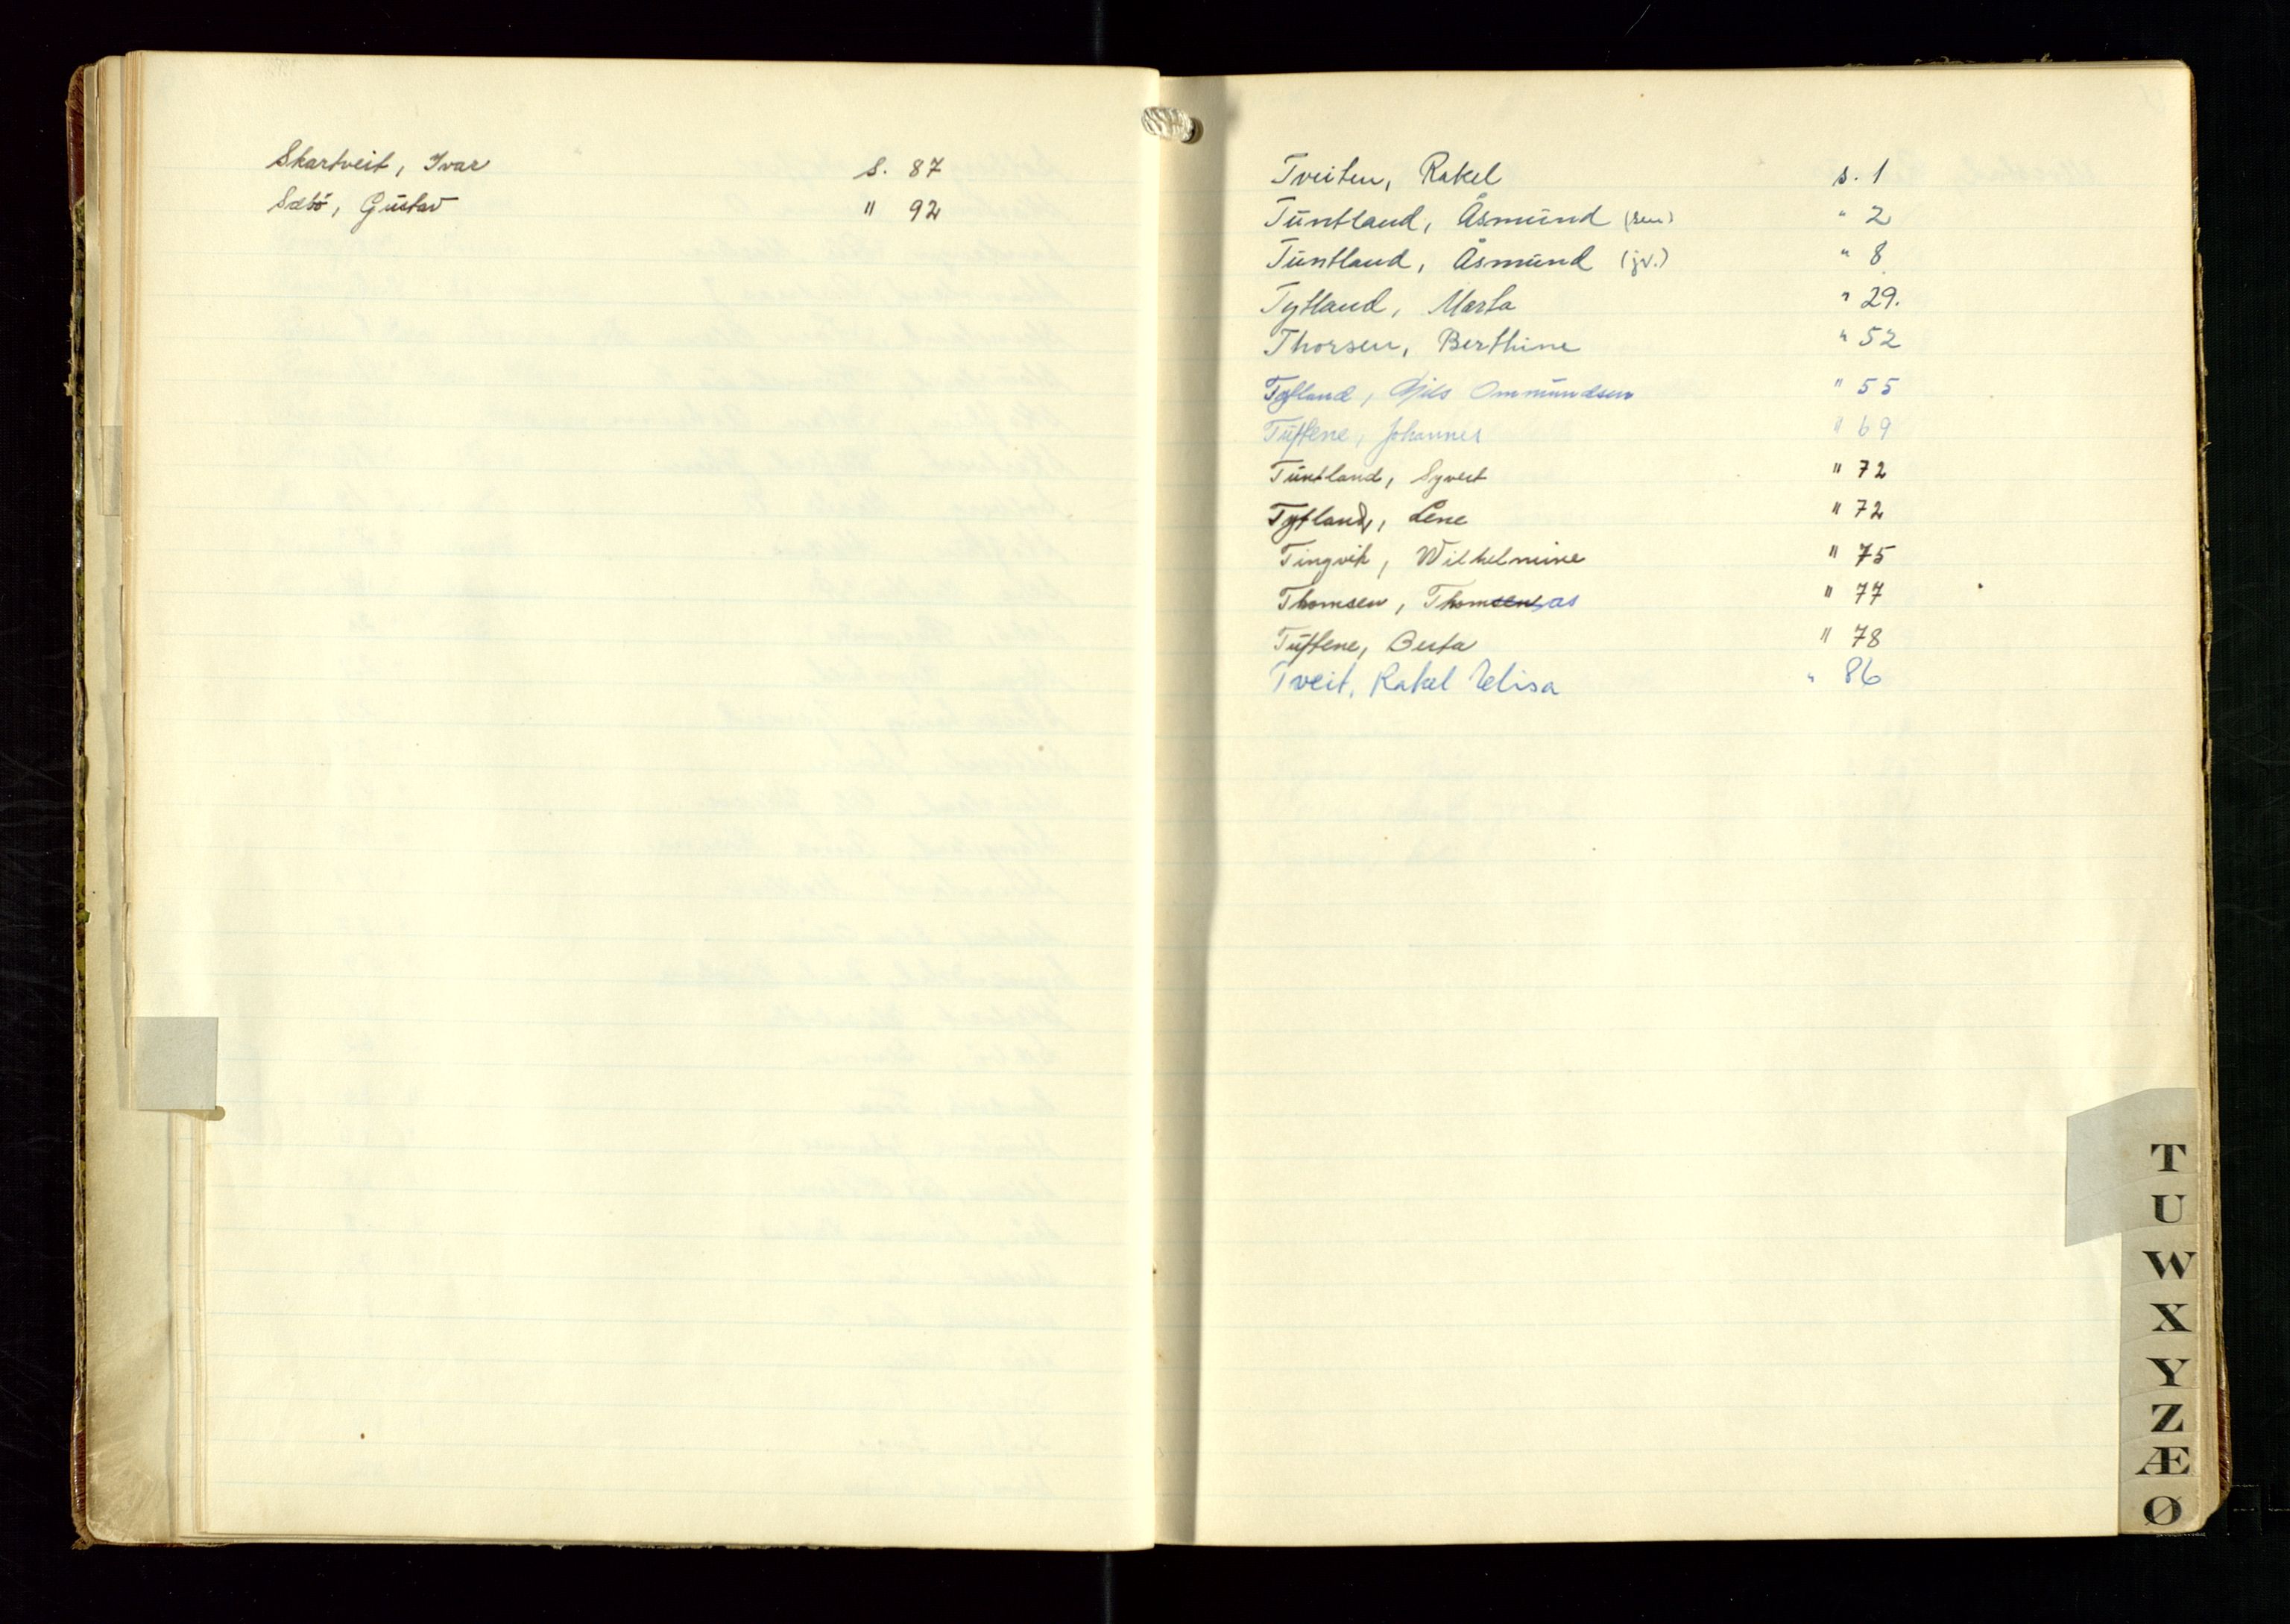 Skartveit, Ivar s. 87
Sæbö, Gustav " 92
Tveiten, Rakel s. 1
Tuntland, Åsmund (sen) " 2
Tuntland, Åsmund (jr.) " 8
Tytland, Marta " 29.
Thorsen, Berthine " 52
Tytland, Nils Ommundsen " 55
Tuftene, Johannes " 69
Tuntland, Syvert " 72
Tytland, Lene " 72
Tingvik, Wilhelmine " 75
Thomsen, Thomsen as " 77
Tuftene, Berta " 78
Tveit, Rakel Elisa " 86
T
U
W
X
Y
Z
Æ
Ø